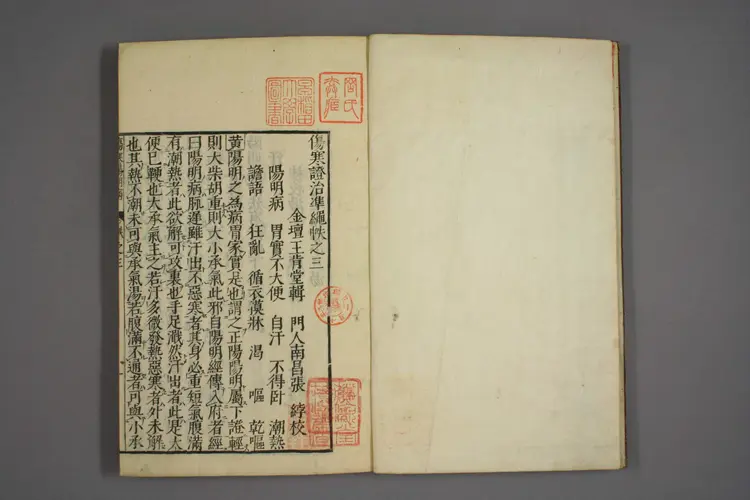 傷寒證治準繩帙之三
金壇王肯堂輯 門人南昌張綍校
陽明病 胃實不大便 自汗 不得卧 潮熱
譫語 狂亂 循衣摸牀 渴 嘔 乾嘔
黃陽明之為病胃家實是也謂之正陽陽明屬下證輕
則大柴胡重則大小承氣此邪自陽明經傳入府者經
曰陽明病脉遲雖汗出不惡寒者其身必重短氣腹滿
有潮熱者此欲解可攻裏也手足濈然汗出者此是大
便已鞕也大承氣主之若汗多微發熱惡寒者外未解
也其熱不潮未可與承氣湯若腹滿不通者可與小承
帙之三